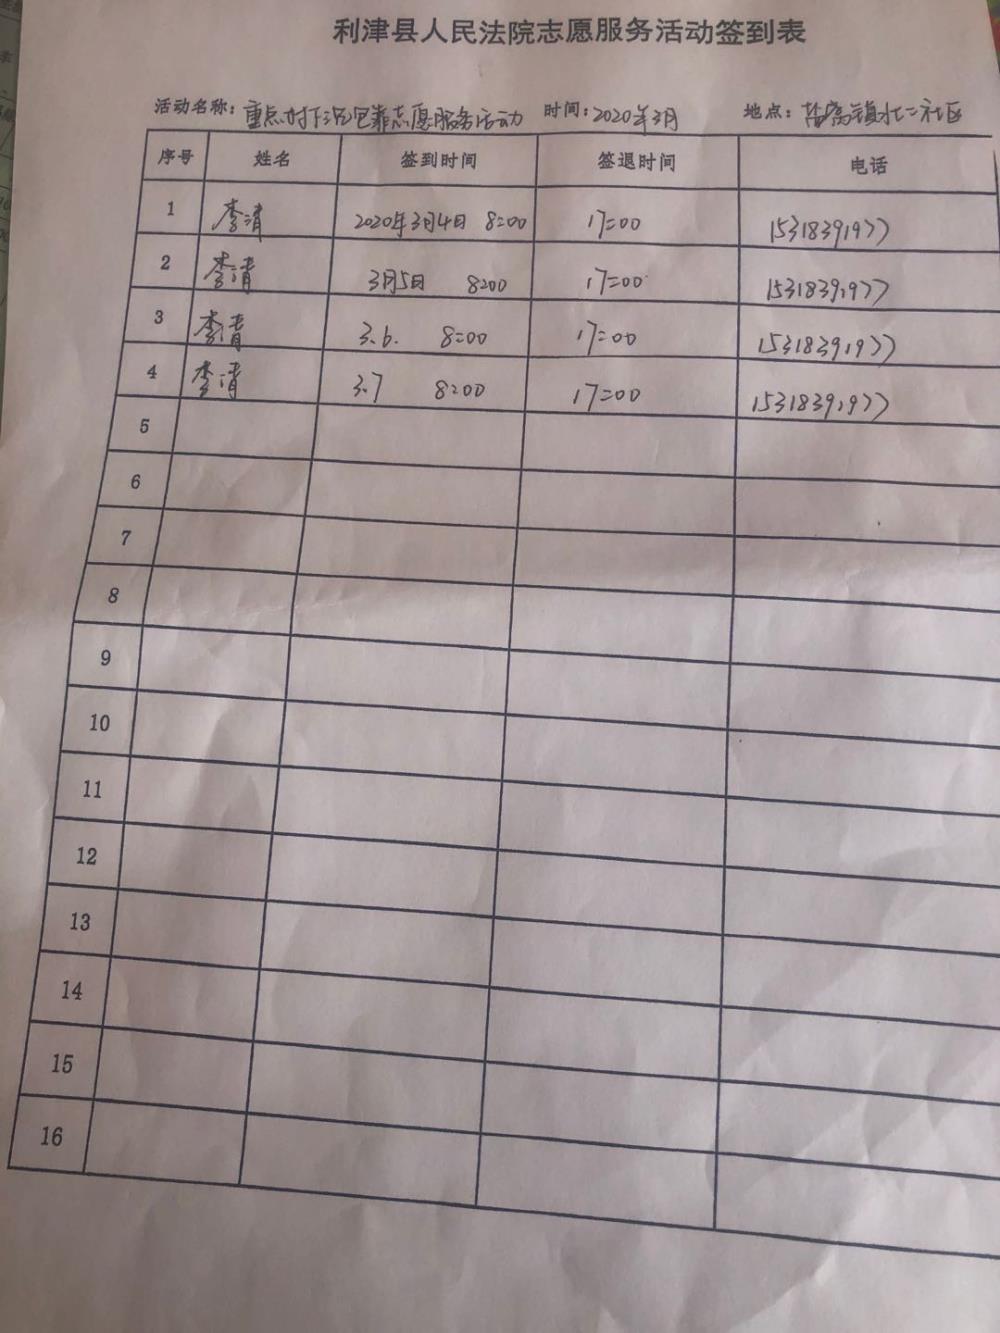 利津县人民法院志愿服务活动签到表
活动名称: 重点村下沉包靠志愿服务活动 时间: 2020年3月 地点: 盐窝镇北二社区
序号 姓名 签到时间 签退时间 电话
1 李清 2020年3月4日 8:00 17:00 15318391977
2 李清 3月5日 8:00 17:00 15318391977
3 李清 3.6. 8:00 17:00 15318391977
4 李清 3.7 8:00 17:00 15318391977
5
6
7
8
9
10
11
12
13
14
15
16